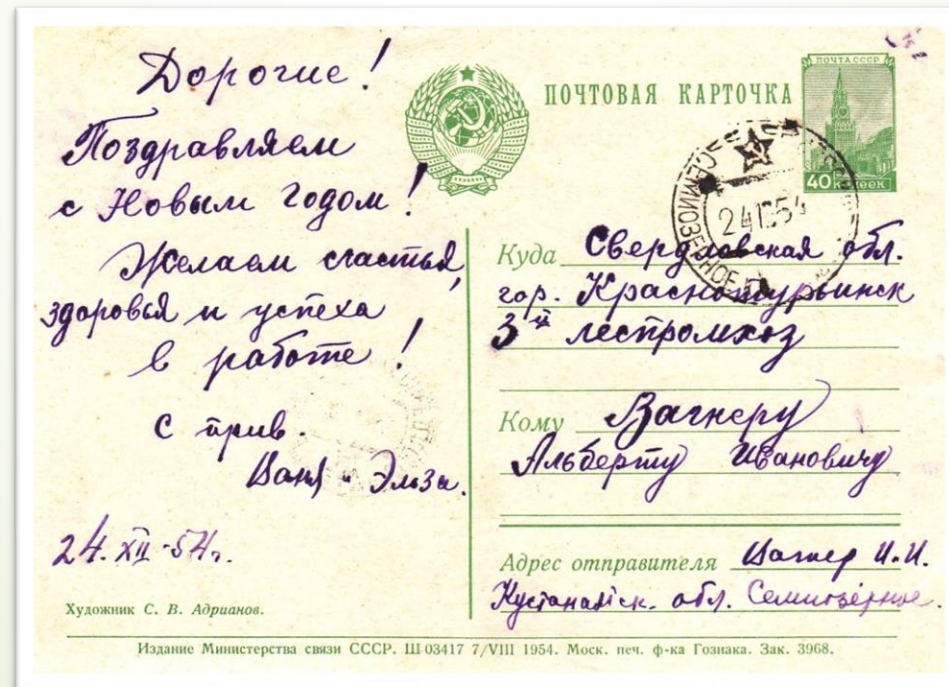 Дорогие!
Поздравляем
с Новым годом!
Желаем счастья,
здоровья и успеха
в работе!
С прив.
Ваня и Эльза.
24.XII-54г.
Художник С. В. Адрианов.
ПОЧТОВАЯ КАРТОЧКА
ПОЧТА СССР
40 КОПЕЕК
СЕМИОЗЕРНОЕ
24 12 54
Куда Свердловская обл.
гор. Краснотурьинск
3й леспромхоз
Кому Вагнеру
Альберту Ивановичу
Адрес отправителя Вагнер И.И.
Кустанайск. обл. Семиозёрное.
Издание Министерства связи СССР. Ш 03417 7/VIII 1954. Моск. печ. ф-ка Гознака. Зак. 3968.